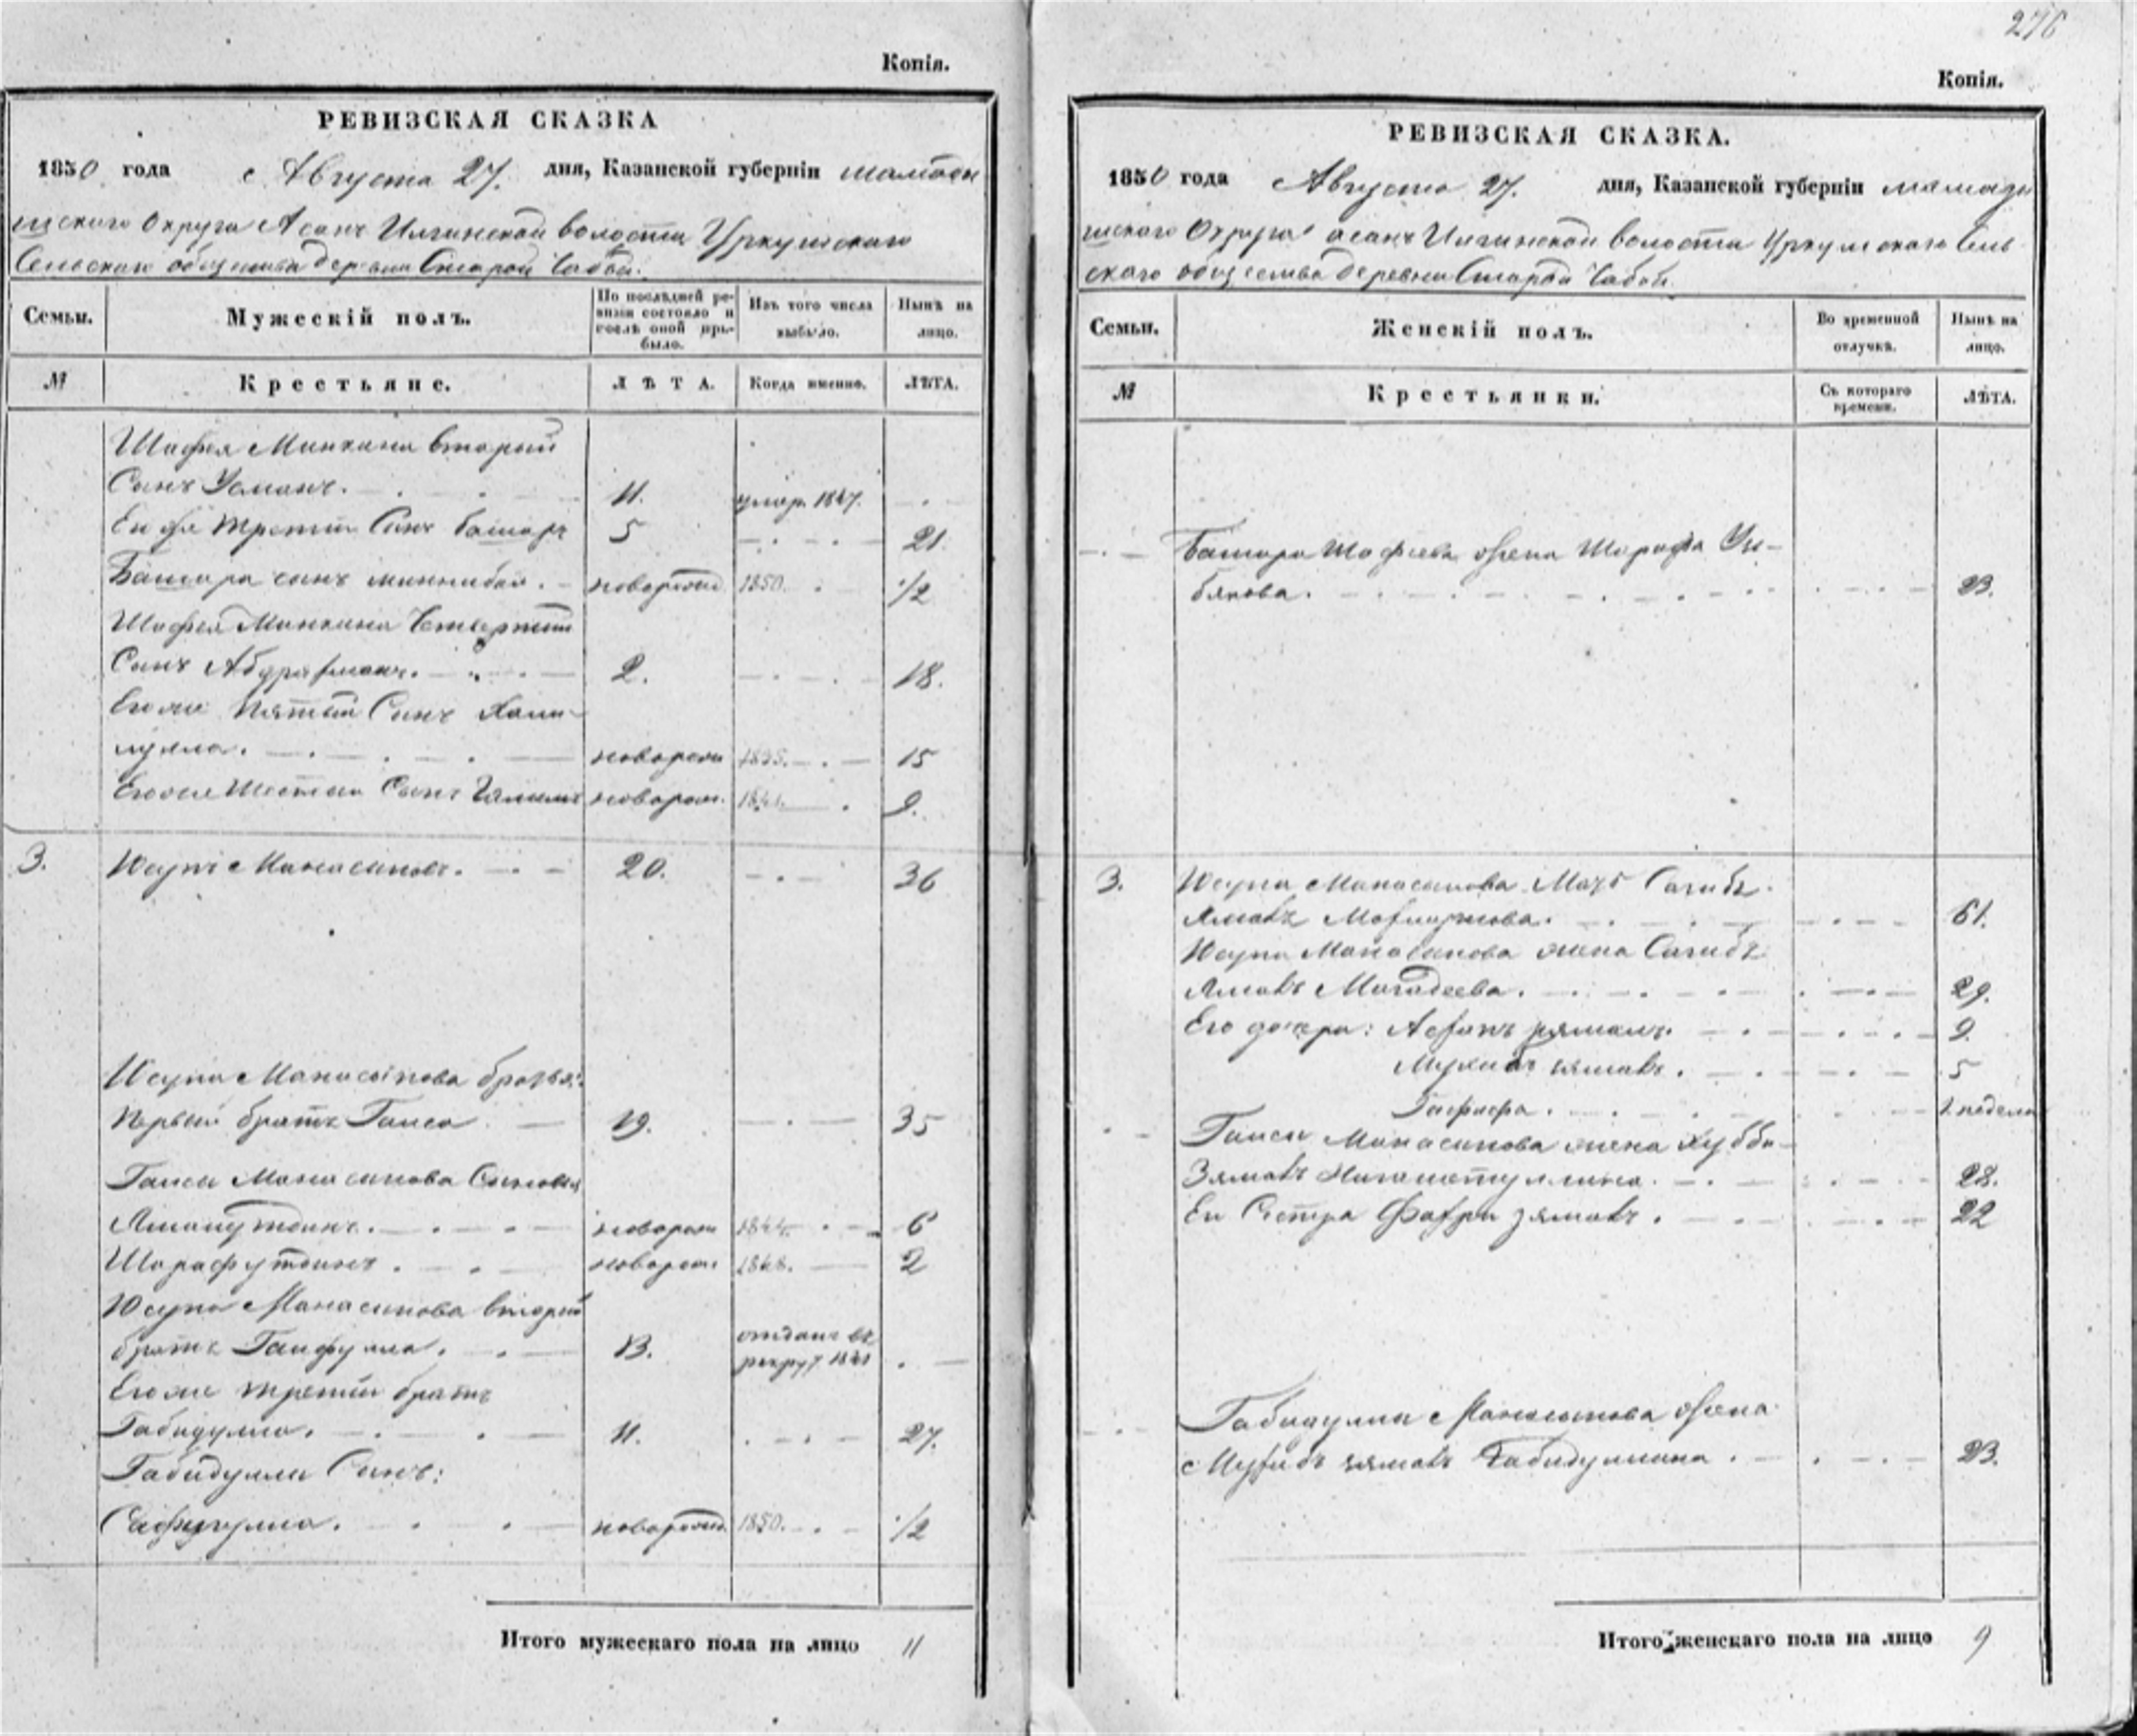 Копія.
РЕВИЗСКАЯ СКАЗКА
1850 года Августа 27. дня, Казанской губерніи мамады
шскаго Округа Асанъ Илгинской волости Уркушскаго
Сельскаго общества деревни Старой Чабьи.
Семьи.
Мужескій полъ.
По послѣдней ре-
визіи состояло и
послѣ оной при-
было.
Изъ того числа
выбыло.
Нынѣ на
лицо.
№
Крестьяне.
ЛѢТА.
Когда именно.
ЛѢТА.
Шафея Минкина вторый
Сынъ Усманъ. 11. умер. 1847.
Ею же третій Сынъ Башаръ 5 21
Башара сынъ миннибай. новорожд 1850. 1/2
Шафея Минкина Четвертый
Сынъ Абдрахманъ. 2. 18.
Его же пятый Сынъ Хами-
дулла. новорож 1835. 15
Его же Шестый Сынъ новорож. 1841. 9.
3. Юсупъ Манасыповъ. 20. 36
Юсупа Манасыпова братья:
Первый братъ Гайса 19. 35
Гайсы Манасыпова Сыновья
новорож 1844. 6
Шарафутдинъ. новорож 1848. 2
Юсупа Манасыпова вторый
братъ Гайфулла. 13. отданъ въ
рекрут 1841
Его же третій братъ
Габидулла. 11. 27.
Габидуллы Сынъ:
новорожд. 1850. 1/2
Итого мужескаго пола на лицо 11
276
Копія.
РЕВИЗСКАЯ СКАЗКА.
1850 года Августа 27. дня, Казанской губерніи мамады
шскаго Округа асанъ Илгинской волости Уркушскаго Сель
скаго общества деревни Старой Чабьи
Семьи.
Женскій полъ.
Во временной
отлучкѣ.
Нынѣ на
лицо.
№
Крестьянки.
Съ котораго
времени.
ЛѢТА.
Башара Шафеева жена Шарифа Уз-
бякова. 23.
3. Юсупа Манасыпова Мать Сагибъ
Ямалъ 61.
Юсупа Манасыпова жена Сагибъ
Ямалъ Магадеева. 29.
Его дочери: 9.
5
Гафифа. 1. недели
Гайсы Манасыпова жена Хубби-
Зямалъ Нигаметуллина. 28.
Ея Сестра Фахризямалъ. 22
Габидуллы Манасыпова жена
зямалъ Габидуллина. 23.
Итого женскаго пола на лицо 9